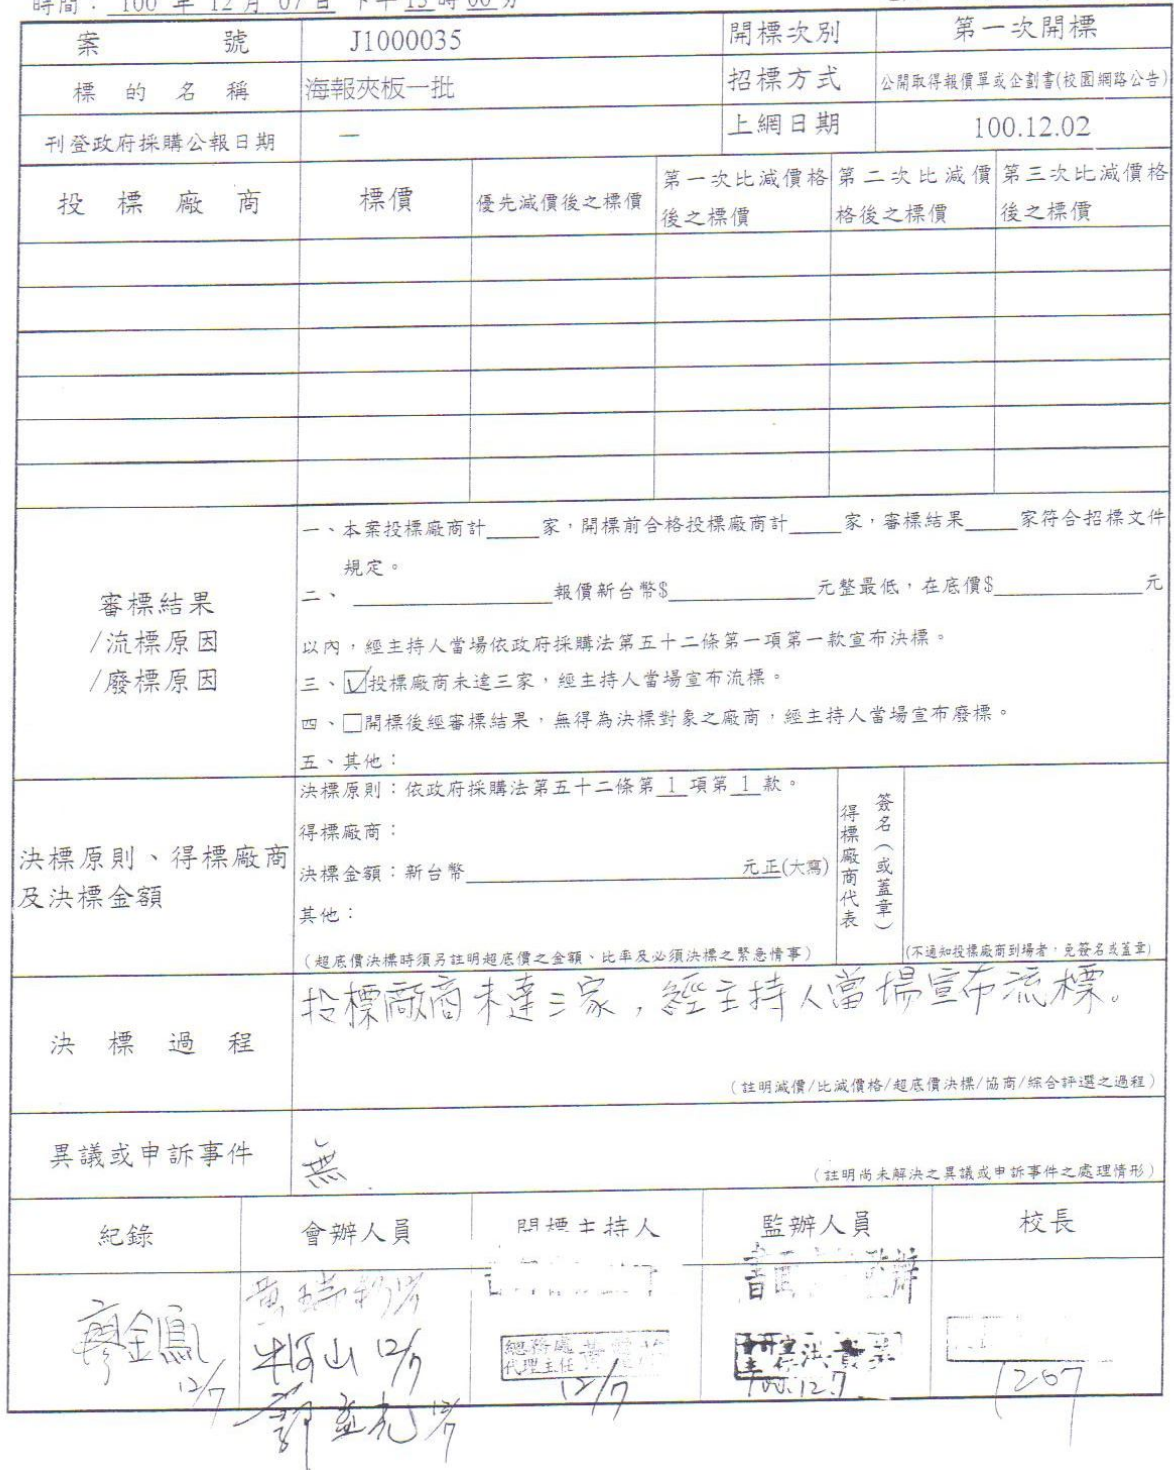 時間：100 年 12 月 07 日 下午 15 時 00 分
案號 J1000035 開標次別 第一次開標
標的名稱 海報夾板一批 招標方式 公開取得報價單或企劃書(校園網路公告)
刊登政府採購公報日期 － 上網日期 100.12.02
投標廠商 標價 優先減價後之標價 第一次比減價格後之標價 第二次比減價格後之標價 第三次比減價格後之標價
審標結果
/流標原因
/廢標原因
一、本案投標廠商計_____家，開標前合格投標廠商計_____家，審標結果_____家符合招標文件
規定。
二、____________________報價新台幣$_______________元整最低，在底價$_______________元
以內，經主持人當場依政府採購法第五十二條第一項第一款宣布決標。
三、☑投標廠商未達三家，經主持人當場宣布流標。
四、□開標後經審標結果，無得為決標對象之廠商，經主持人當場宣布廢標。
五、其他：
決標原則、得標廠商
及決標金額
決標原則：依政府採購法第五十二條第 1 項第 1 款。
得標廠商：
決標金額：新台幣____________________元正(大寫)
其他：
(超底價決標時須另註明超底價之金額、比率及必須決標之緊急情事)
得標廠商代表
簽名(或蓋章)
(不通知投標廠商到場者，免簽名或蓋章)
決標過程
投標廠商未達三家，經主持人當場宣布流標。
(註明減價/比減價格/超底價決標/協商/綜合評選之過程)
異議或申訴事件
無
(註明尚未解決之異議或申訴事件之處理情形)
紀錄 會辦人員 開標主持人 監辦人員 校長
廖金鳳 12/7
12/7
12/7
總務處
代理主任
12/7
100.12.7
1207